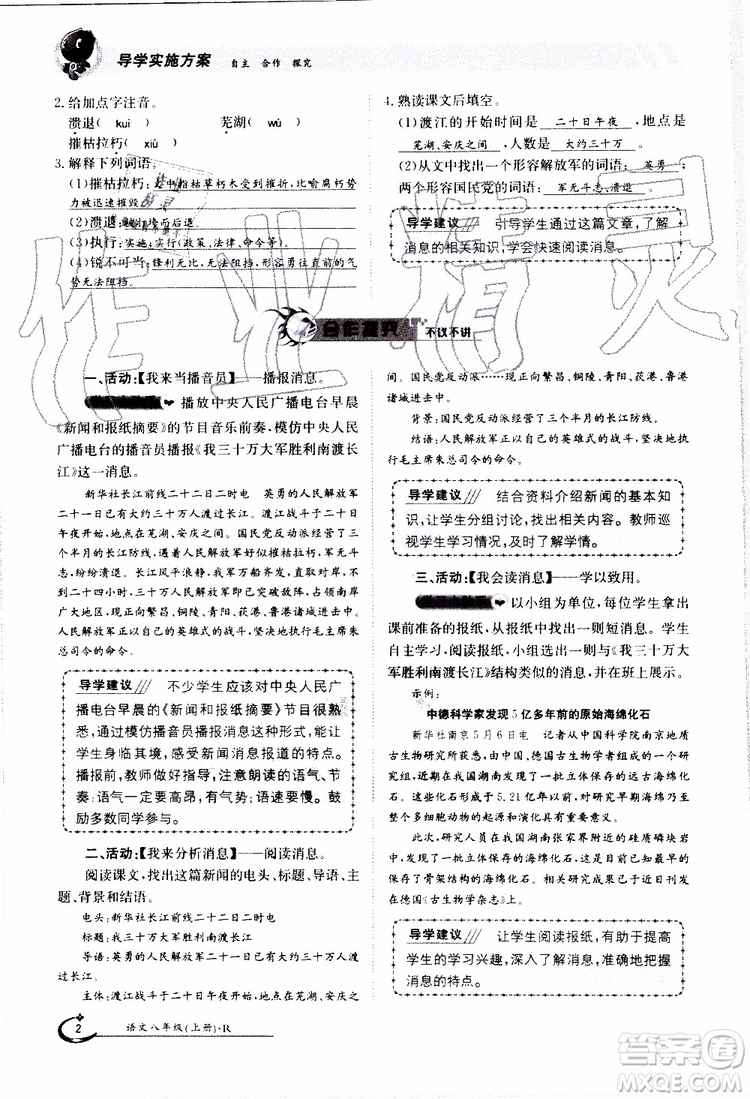 导学实施方案 自主 合作 探究
2.给加点字注音。
溃退( kuì ) 芜湖( wú )
摧枯拉朽( xiǔ )
3.解释下列词语。
(1)摧枯拉朽:
指枯草朽木受到摧折,比喻腐朽势
力被迅速摧毁
(2)溃退: 后退。
(3)执行:实施;实行(政策、法律、命令等)。
(4)锐不可当:锋利无比,无法阻挡,形容勇往直前的气
势无法阻挡。
4.熟读课文后填空。
(1)渡江的开始时间是 二十日午夜 ,地点是
芜湖、安庆之间 ,人数是 大约三十万 。
(2)从文中找出一个形容解放军的词语: 英勇 ;
两个形容国民党的词语: 军无斗志、溃退 。
导学建议 引导学生通过这篇文章,了解
消息的相关知识,学会快速阅读消息。
合作探究 不议不讲
一、活动:【我来当播音员】——播报消息。
播放中央人民广播电台早晨
《新闻和报纸摘要》的节目音乐前奏,模仿中央人民
广播电台的播音员播报《我三十万大军胜利南渡长
江》这一消息。
新华社长江前线二十二日二时电 英勇的人民解放军
二十一日已有大约三十万人渡过长江。渡江战斗于二十日
午夜开始,地点在芜湖、安庆之间。国民党反动派经营了三
个半月的长江防线,遇着人民解放军好似摧枯拉朽,军无斗
志,纷纷溃退。长江风平浪静,我军万船齐放,直取对岸,不
到二十四小时,三十万人民解放军即已突破敌阵,占领南岸
广大地区,现正向繁昌、铜陵、青阳、荻港、鲁港诸城进击中。
人民解放军正以自己的英雄式的战斗,坚决地执行毛主席朱
总司令的命令。
导学建议 不少学生应该对中央人民广
播电台早晨的《新闻和报纸摘要》节目很熟
悉,通过模仿播音员播报消息这种形式,能让
学生身临其境,感受新闻消息报道的特点。
播报前,教师做好提示,注意朗读的语气、节
奏:语气一定要高昂,有气势;语速要稍快。鼓
励多数同学参与。
二、活动:【我来分析消息】——阅读消息。
阅读课文,找出这篇新闻的电头、标题、导语、主
题、背景和结语。
电头:新华社长江前线二十二日二时电
标题:我三十万大军胜利南渡长江
导语:英勇的人民解放军二十一日已有大约三十万人渡
过长江。
主体:渡江战斗于二十日午夜开始,地点在芜湖、安庆之
间。国民党反动派……现正向繁昌、铜陵、青阳、荻港、鲁港
诸城进击中。
背景:国民党反动派经营了三个半月的长江防线。
结语:人民解放军正以自己的英雄式的战斗,坚决地执
行毛主席朱总司令的命令。
导学建议 结合资料介绍新闻的基本知
识,让学生分组讨论,找出相关内容。教师巡
视学生学习情况,及时了解学情。
三、活动:【我会读消息】——学以致用。
以小组为单位,每位学生拿出
课前准备的报纸,从报纸中找出一则短消息。学生
自主学习,阅读消息,小组选出一则与《我三十万大
军胜利南渡长江》结构类似的消息,并在班上展示。
示例:
中德科学家发现5亿多年前的原始海绵化石
新华社南京5月6日电 记者从中国科学院南京地质
古生物研究所获悉,由中国、德国古生物学者组成的一个研
究组,近期在我国湖南发现了一批立体保存的远古海绵化
石。这些化石形成于5.21亿年以前,对研究寒武纪早期海
绵动物,乃至整个后生动物的起源和演化具有重要意义。
此次,研究人员在我国湖南张家界附近的硅质磷块岩
中,发现了一批立体保存的海绵化石。这些化石大多数保存
了骨架结构精美的海绵化石。研究成果已于近日发表在德
国《古生物学杂志》上。
导学建议 让学生阅读报纸,有助于提高学
生的学习兴趣,深入了解消息的内容,并掌握
消息的特点。
2 语文八年级(上册)·R
作业精灵
答案圈
MXQE.COM